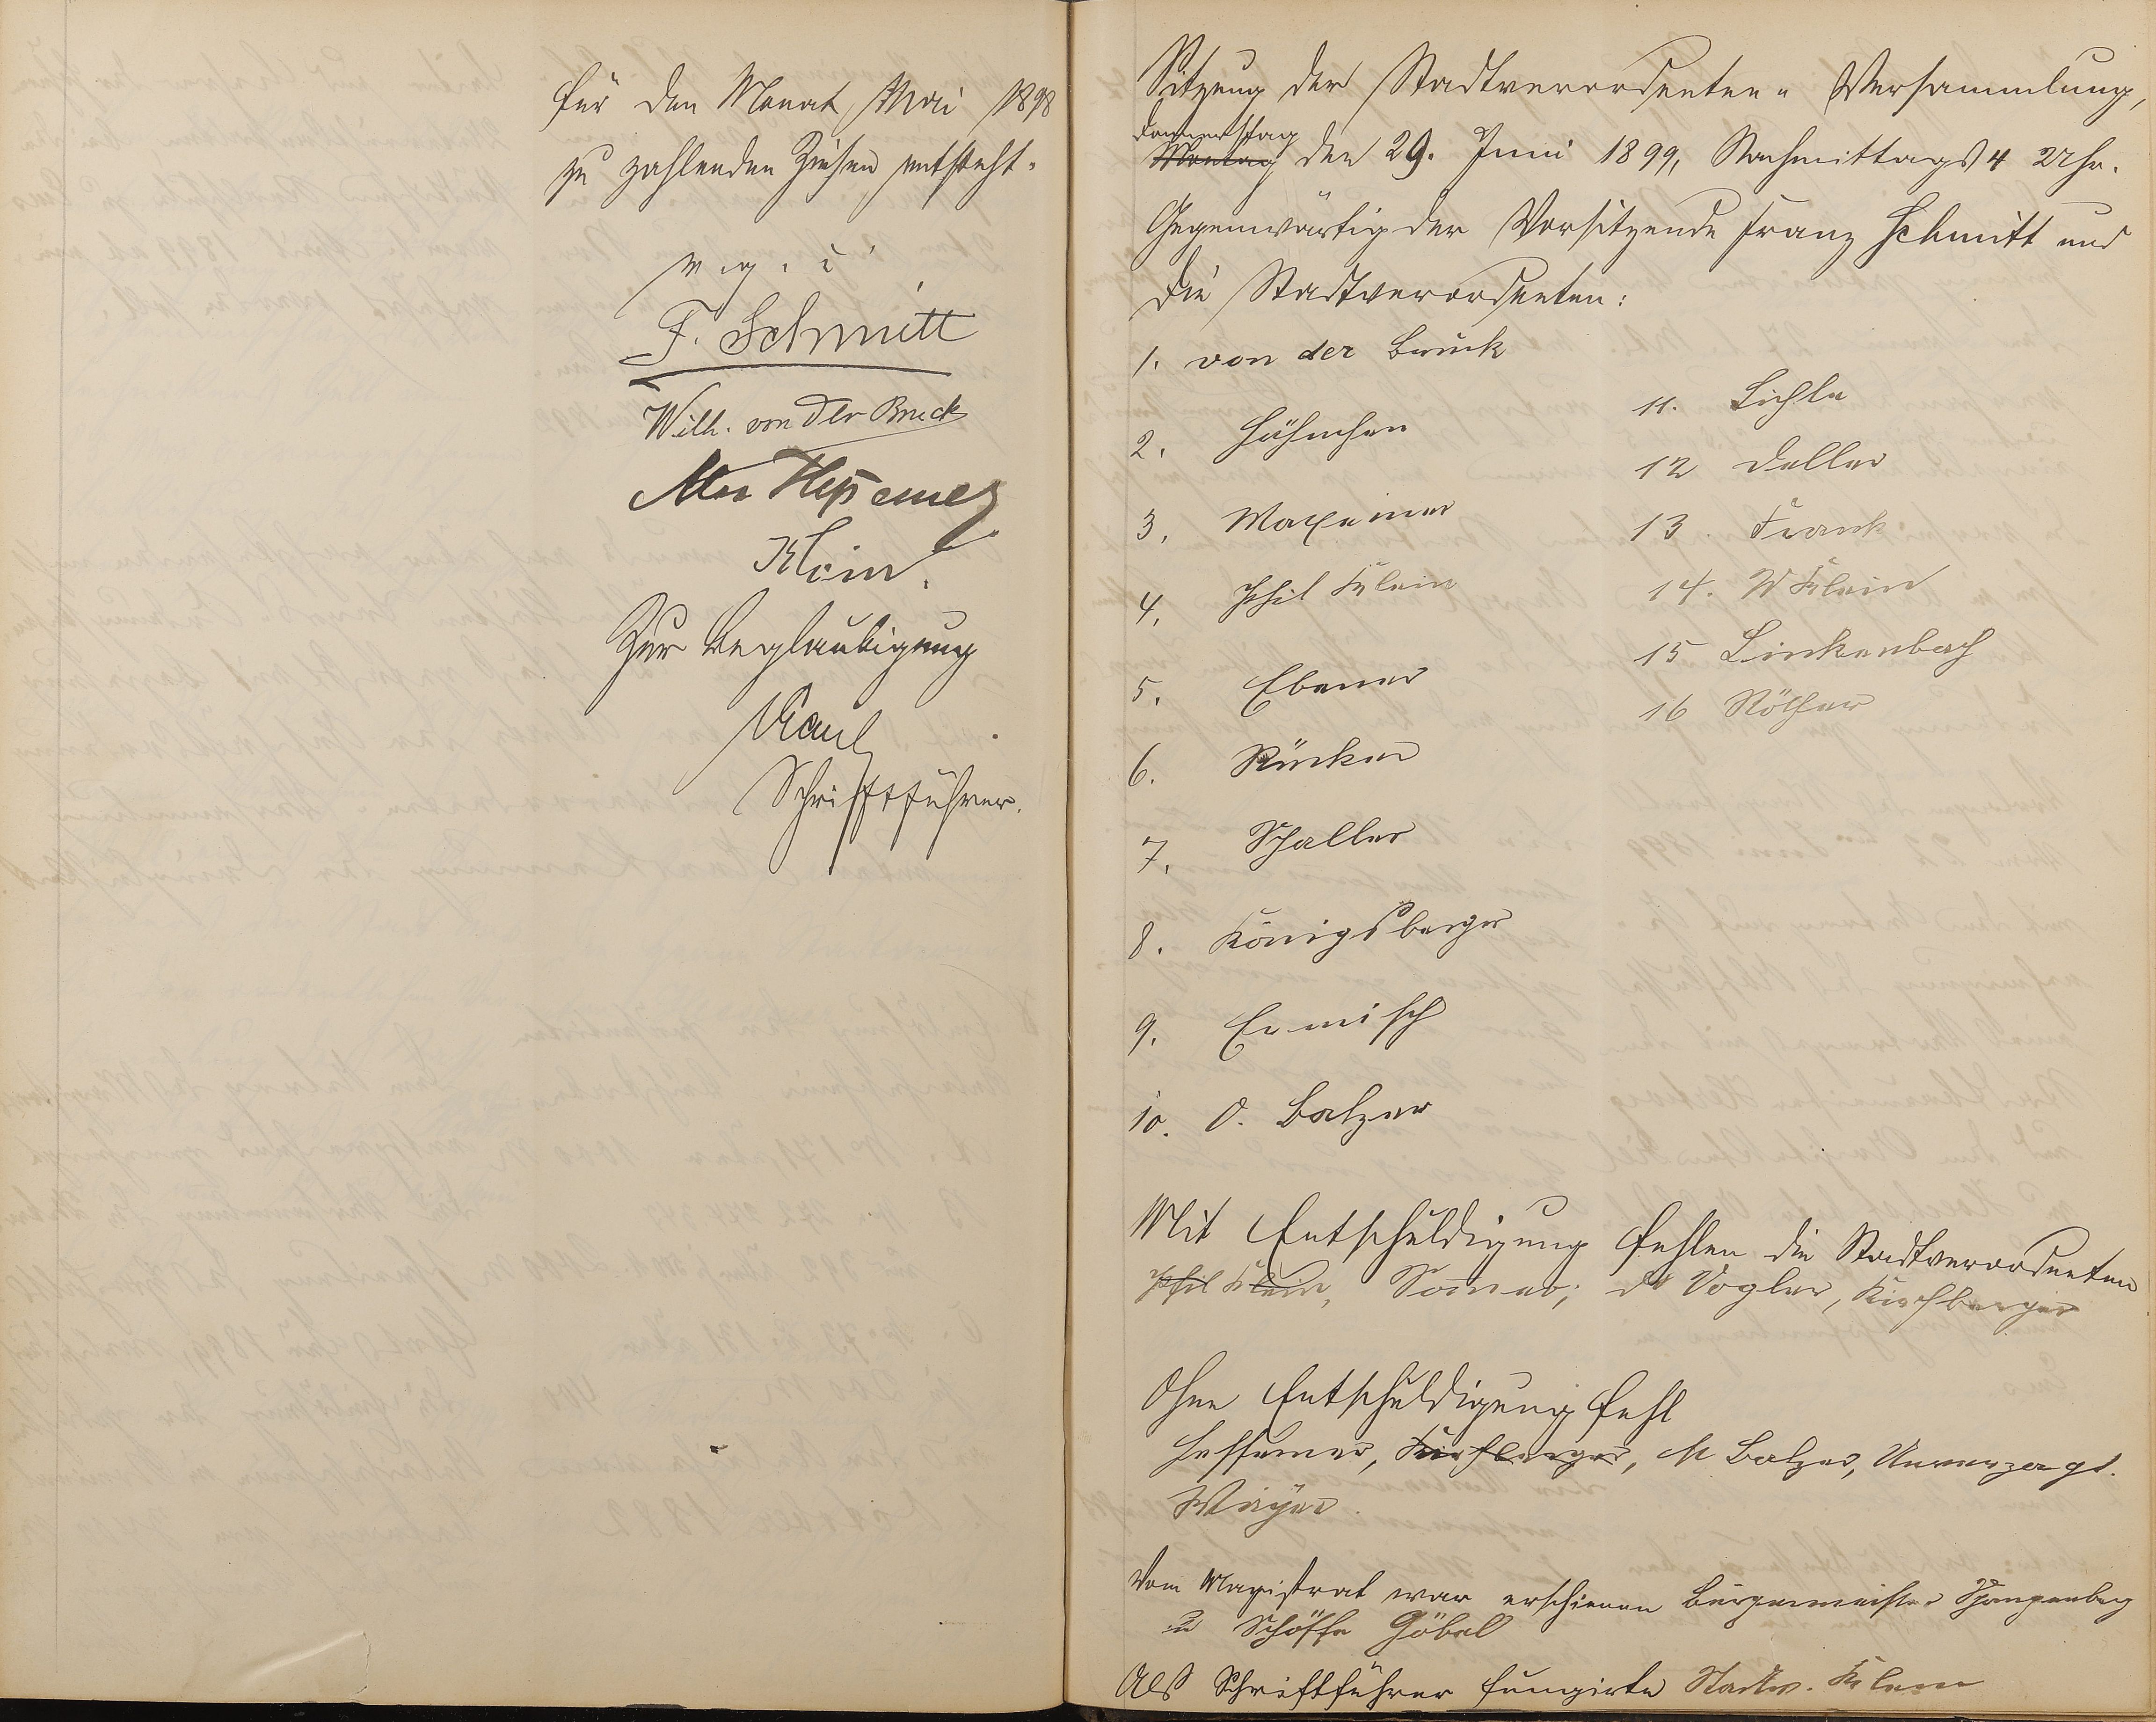 für den Monat Mai 1898
zu zahlenden Zinsen entsteht.
v. g. u.
F. Schmitt
Wilh. von der Bruck
Klein.
Zur Beglaubigung
Kaul
Schriftführer.
Sitzung der Stadtverordneten-Versammlung,
Donnerstag
Montag den 29. Juni 1899, Nachmittags 4 Uhr.
Gegenwärtig der Vorsitzende Franz Schmitt und
die Stadtverordneten:
1. von der Bruck
2. Hähnchen
3. Maxeiner
4. Phil Klein
5. Ebener
6. Rücker
7. Schaller
8. Königsberger
9. Ermisch
10. O. Balzer
11. Lichle
12 Deller
13. Frank
14. W Klein
15 Linkenbach
16 Röther
Mit Entschuldigung fehlen die Stadtverordneten
Phil Klein, Dr Vogler, Kirchberger
Ohne Entschuldigung fehl
Hessemer, Kirchberger, M Balzer, Unverzagt.
Mayer.
Vom Magistrat war erschienen Bürgermeister Spangenberg
u Schöffe Göbel
Als Schriftführer fungirte Stadtv. Klein